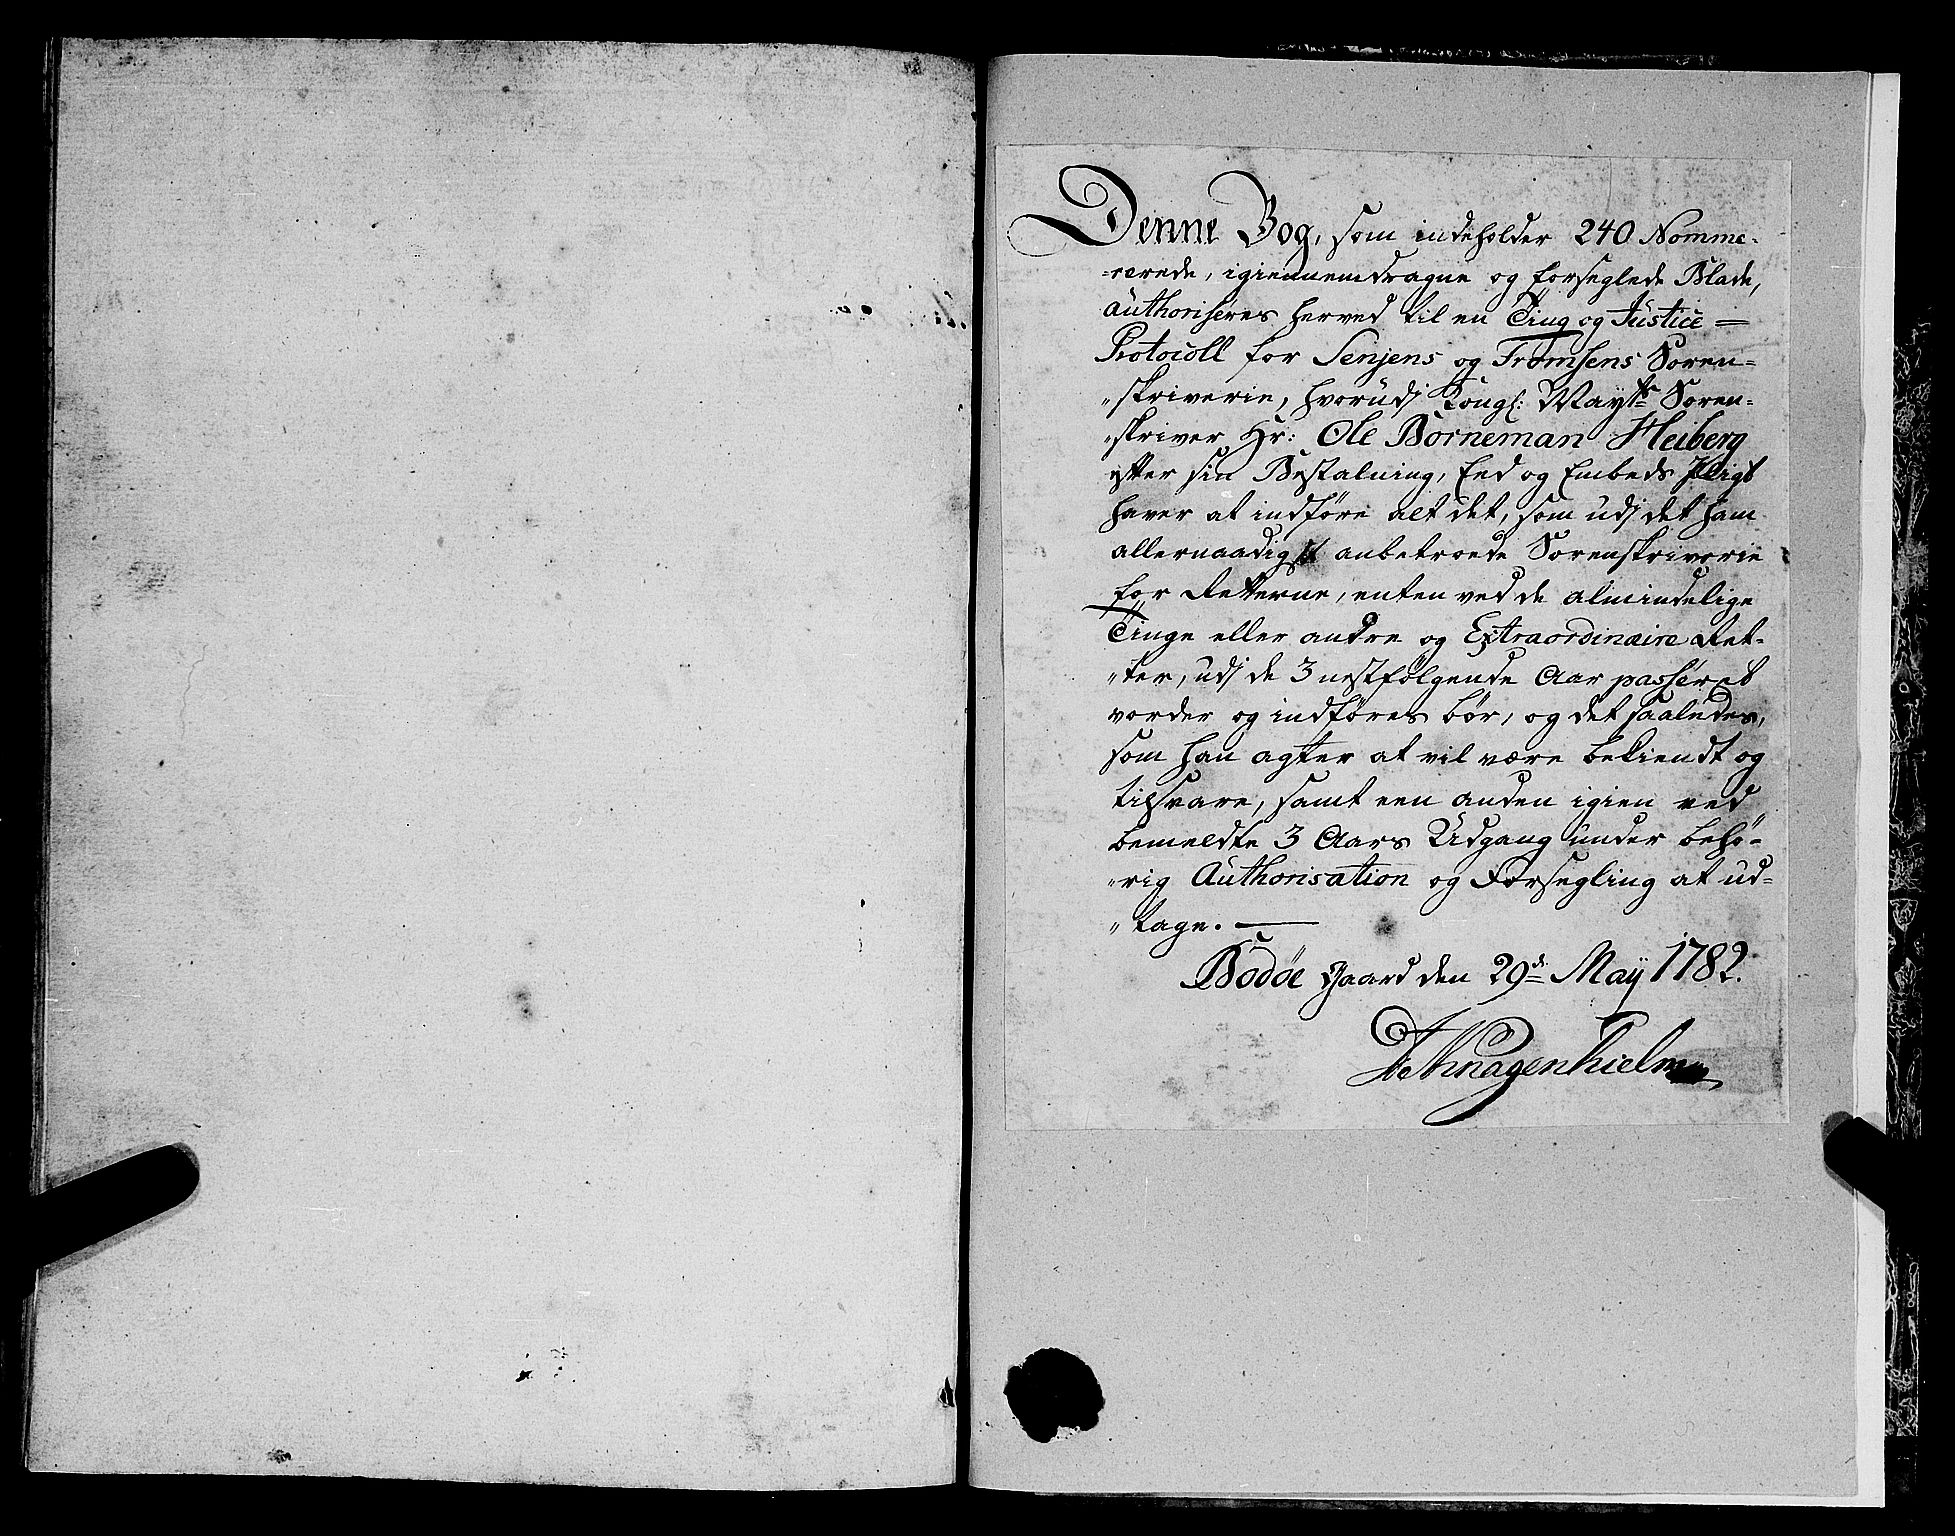 Denne Bog, som indeholder 240 Nomme-
-rerede, igiennemdragne og forseglede Blade,
authoriseres herved til en Ting og Justice =
Protocoll for Senjens og Tromsens Soren=
"skriverie, hvorudj Kongl: Mayts Soren=
"skriver Hr: Ole Borneman Heiberg
efter sin Bestalning, Eed og Embeds Pligt
haver at indføre alt det, som udj det ham
allernaadigst anbetroede Sorenskriverie
for Retterne, enten ved de almindelige
Tinge eller andre og Extraordinaire Ret-
"ter, udj de 3 nestfølgende Aar passeret
vorder og indføres bør, og det saaledes,
som han agter at vil være bekiendt og
tilsvare, samt een anden igien ved
bemeldte 3 Aars Udgang under behø-
"rig Authorisation og Forsegling at ud=
"tage. —
Bodøe Gaard den 29d. May 1782.
Hagenhielm